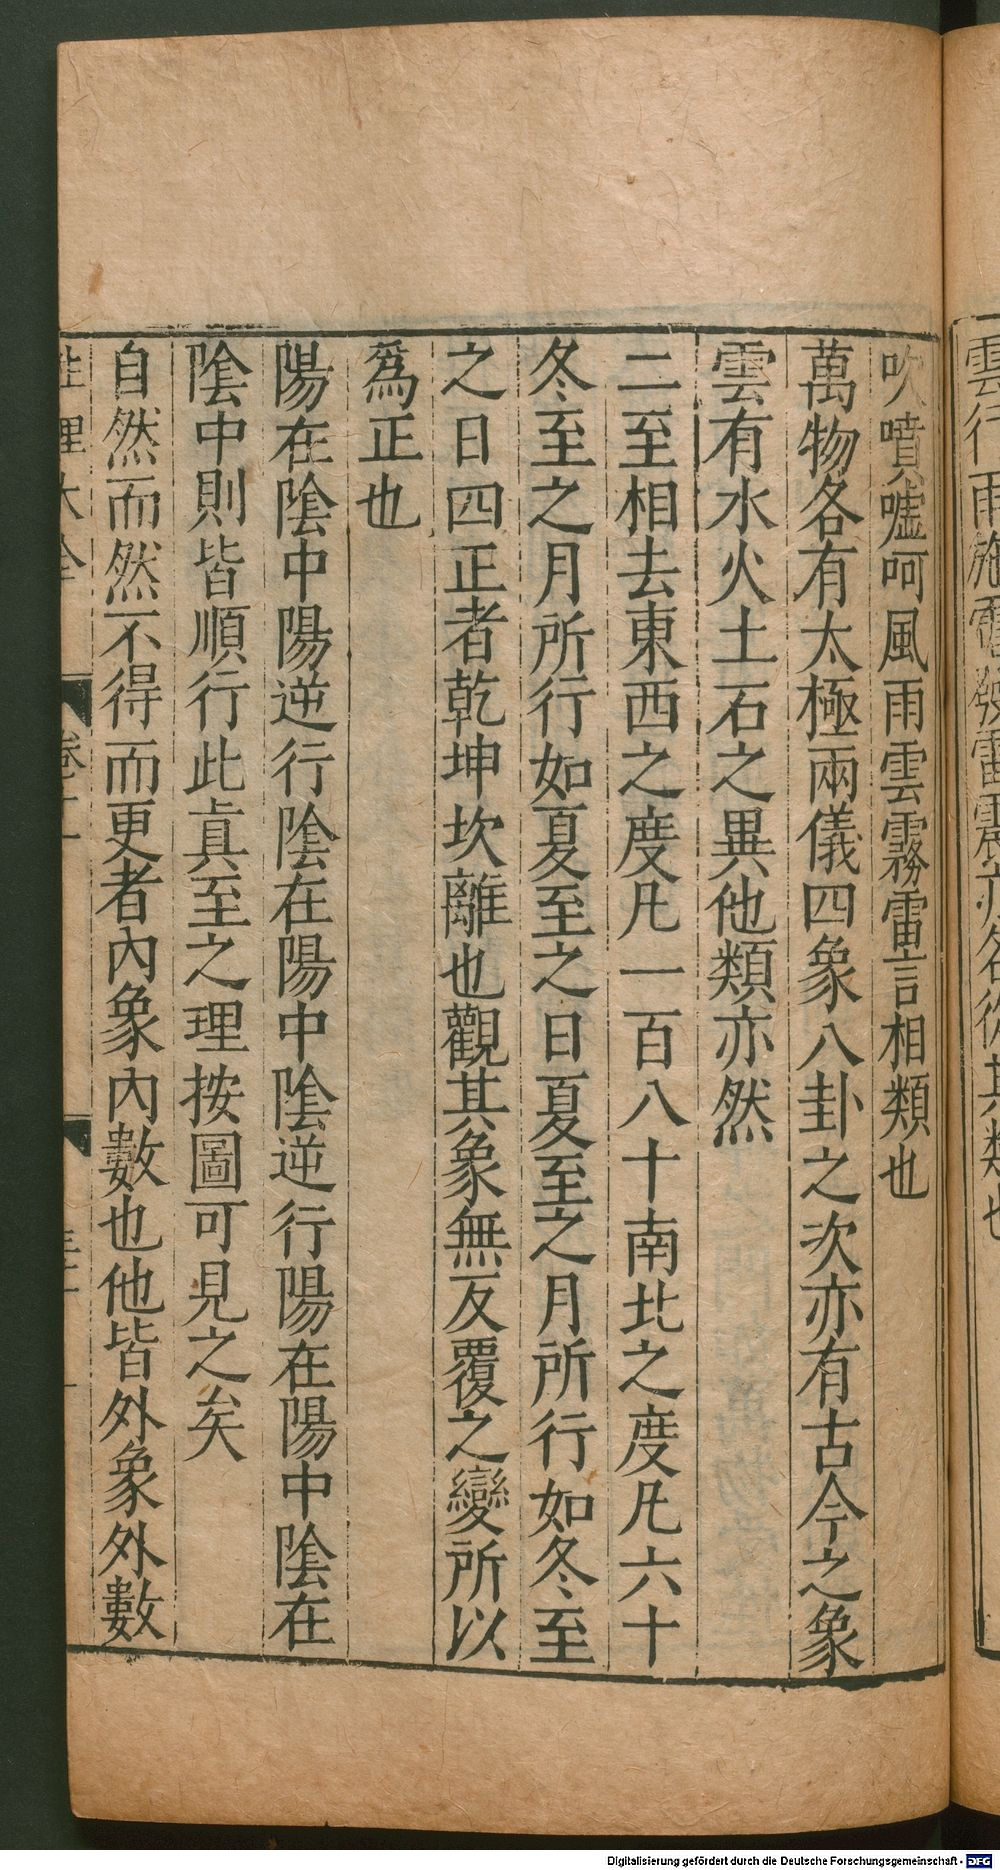 吹噴噓呵風雨雲霧雷言相類也
萬物各有太極兩儀四象八卦之次亦有古今之象
雲有水火土石之異他類亦然
二至相去東西之度凡一百八十南北之度凡六十
冬至之月所行如夏至之日夏至之月所行如冬至
之日四正者乾坤坎離也觀其象無反覆之變所以
爲正也
陽在陰中陽逆行陰在陽中陰逆行陽在陽中陰在
陰中則皆順行此眞至之理按圖可見之矣
自然而然不得而更者內象內數也他皆外象外數
性理大全 卷十
Digitalisierung gefördert durch die Deutsche Forschungsgemeinschaft - DFG